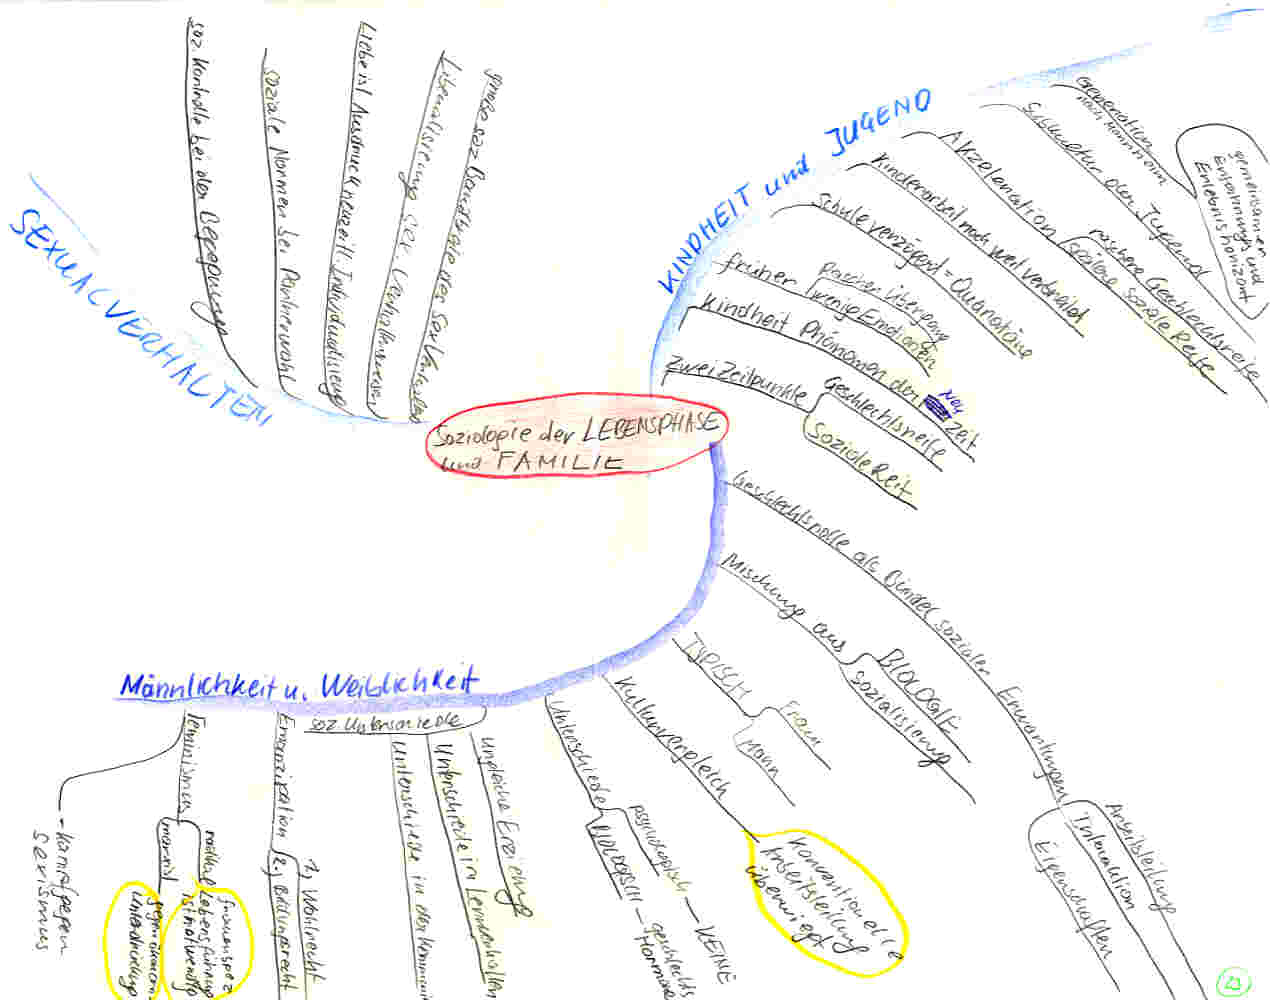 Soziologie der LEBENSPHASE
und FAMILIE
KINDHEIT und JUGEND
Generation
nach Mannheim
gemeinsamer
Erfahrungs und
Erlebnishorizont
Subkultur der Jugend
Akzeleration
raschere Geschlechtsreife
spätere soziale Reife
Kinderarbeit noch weit verbreitet
Schule verzögert = Quarantäne
früher
Rascher Übergang
wenige Emotionen
Kindheit Phänomen der Neuzeit
zwei Zeitpunkte
Geschlechtsreife
Soziale Reif
SEXUALVERHALTEN
soz. Kontrolle bei den Begegnungen
soziale Normen bei Partnerwahl
Liebe ist Ausdruck neuzeitl. Individualisierung
Liberalisierung sex. Verhaltensweisen
große soz Bandbreite des Sexverhaltens
Männlichkeit u. Weiblichkeit
Geschlechtsrolle als Bündel sozialer Erwartungen
Arbeitsteilung
Interaktion
Eigenschaften
Mischung aus
BIOLOGIE
Sozialisierung
TYPISCH
Frau
Mann
Kulturvergleich
Konventionelle
Arbeitsteilung
überwiegt
Unterschiede
psychologisch — KEINE
BIOLOGISCH — geschlechts
Hormone
soz. Unterschiede
ungleiche Erziehung
Unterschiede in Lernverhalten
Unterschiede in der Kommuni
Emanzipation
1, Wahlrecht
2, Bildungsrecht
Feminismus
radikal
frauenspez
Lebensführung
ist notwendig
marxist
gegen ökonom
Unterdrückung
- Kampf gegen
Sexismus